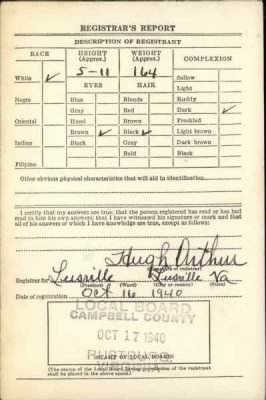 REGISTRAR'S REPORT
DESCRIPTION OF REGISTRANT
RACE HEIGHT (Approx.) WEIGHT (Approx.) COMPLEXION
White ✓ 5-11 164 Sallow
EYES HAIR Light
Negro Blue Blonde Ruddy
Gray Red Dark ✓
Oriental Hazel Brown Freckled
Brown ✓ Black ✓ Light brown
Indian Black Gray Dark brown
Bald Black
Filipino
Other obvious physical characteristics that will aid in identification
I certify that my answers are true; that the person registered has read or has had
read to him his own answers; that I have witnessed his signature or mark and that
all of his answers of which I have knowledge are true, except as follows:
Hugh Arthur
(Signature of registrar)
Registrar for Leesville Leesville Va
(Precinct) (Ward) (City or county) (State)
Date of registration Oct 16 1940
LOCAL BOARD
CAMPBELL COUNTY
OCT 17 1940
RUSTBURG,
VIRGINIA
(STAMP OF LOCAL BOARD)
(The stamp of the Local Board having jurisdiction of the registrant
shall be placed in the above space.)